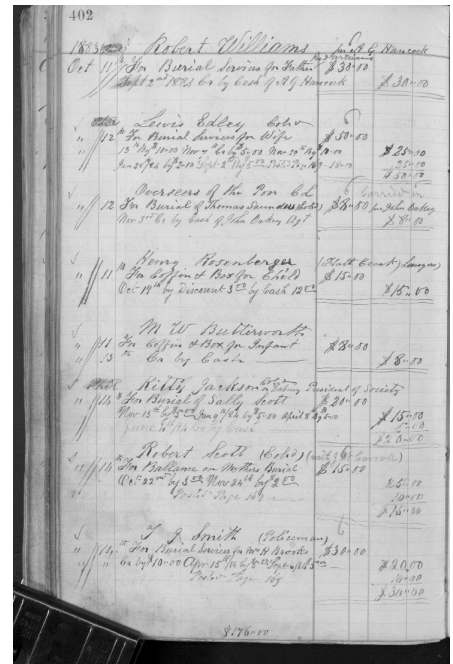 402
1883 Robert Williams per A G Hancock
Oct 11th For Burial Services for Father $30.00
Sept 2nd 1884 Cr by Cash of A G Hancock $30.00
Lewis Edley Cold
" 12th For Burial Services for Wife $50.00
13th By $10.00 Nov 4th Cr by 5.00 Nov 20th By 10.00 $25.00
25.00
$50.00
Overseers of the Poor Cd
" 12 For Burial of Thomas Saunders (Cold) $8.00 per John Oakey
Nov 3rd Cr by Cash of John Oakey Agt $8.00
Henry Rosenberger
" 11th For Coffin & Box for Child $15.00
Oct 19th by Discount 3.00 by Cash 12.00 $15.00
M W Butterworth
" 11 For Coffin & Box for Infant $8.00
" 13th Cr by Cash $8.00
Kitty Jackson President of Society
" 14th For Burial of Sally Scott $20.00
Nov 13th by 5.00 Jan 9th/84 by 5.00 April 8 By 5.00 $15.00
5.00
$20.00
Robert Scott (Cold)
" 14th For Ballance on Mothers Burial $15.00
Oct 22nd by 3.00 Nov 24th by 2.00 $5.00
Posted Page 169 10.00
$15.00
T J Smith (Policeman)
" 14th For Burial Services for Mrs H Brooks $30.00
" Cr by $10.00 Apr 15th/84 by $20.00
Posted Page 169 10.00
$30.00
$176.00